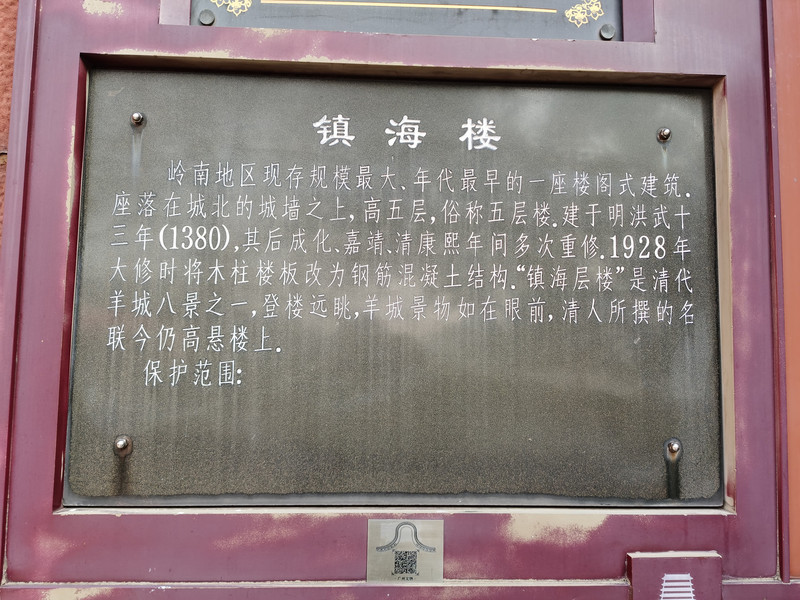 镇海楼
岭南地区现存规模最大、年代最早的一座楼阁式建筑.
座落在城北的城墙之上,高五层,俗称五层楼.建于明洪武十
三年(1380),其后成化、嘉靖、清康熙年间多次重修.1928年
大修时将木柱楼板改为钢筋混凝土结构.“镇海层楼”是清代
羊城八景之一,登楼远眺,羊城景物如在眼前,清人所撰的名
联今仍高悬楼上.
保护范围: